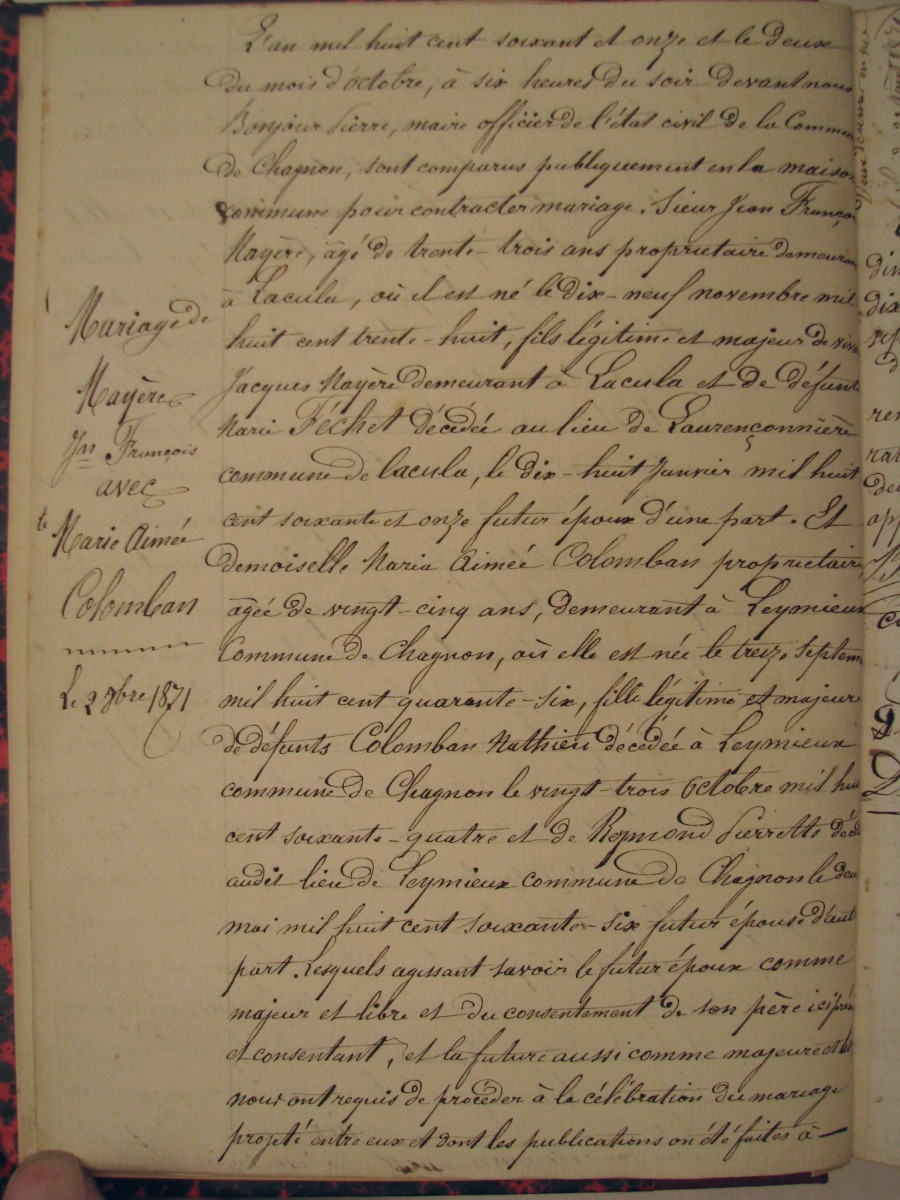 Mariage de
Mayère
Jn François
avec
Marie Aimée
Colomban
Le 2 9bre 1871
L'an mil huit cent soixant et onze et le deux
du mois d'octobre, à six heures du soir devant nous
Bonjour Pierre, maire officier de l'état civil de la Commun
de Chagnon, sont comparus publiquement en la maison
commune pour contracter mariage. Sieur Jean Franço
Mayère, âgé de trente-trois ans proprietaire demeuran
à Lacula, où il est né le dix-neuf novembre mil
huit cent trente-huit, fils légitime et majeur de viva
Jacques Mayère demeurant à Lacula et de défunte
Marie Féchet décédée au lieu de Laurençonnière
commune de lacula, le dix-huit Janvier mil huit
cent soixante et onze futur époux d'une part. Et
demoiselle Maria Aimée Colomban proprietaire
agée de vingt-cinq ans, demeurant à Leymieux
Commune de Chagnon, où elle est née le treize Septem
mil huit cent quarante-six, fille légitime et majeure
de défunts Colomban Mathieu décédée à Leymieux
commune de Chagnon le vingt-trois Octobre mil hui
cent soixante-quatre et de Reymond Pierrette décé
audit lieu de Leymieux commune de Chagnon le deu
mai mil huit cent soixante-six future épouse d'aut
part. Lesquels agissant savoir le futur époux comme
majeur et libre et du consentement de son père ici prés
et consentant, et la future aussi comme majeure et li
nous ont requis de procéder à la célébration du mariage
projeté entre eux et dont les publications on été faites à